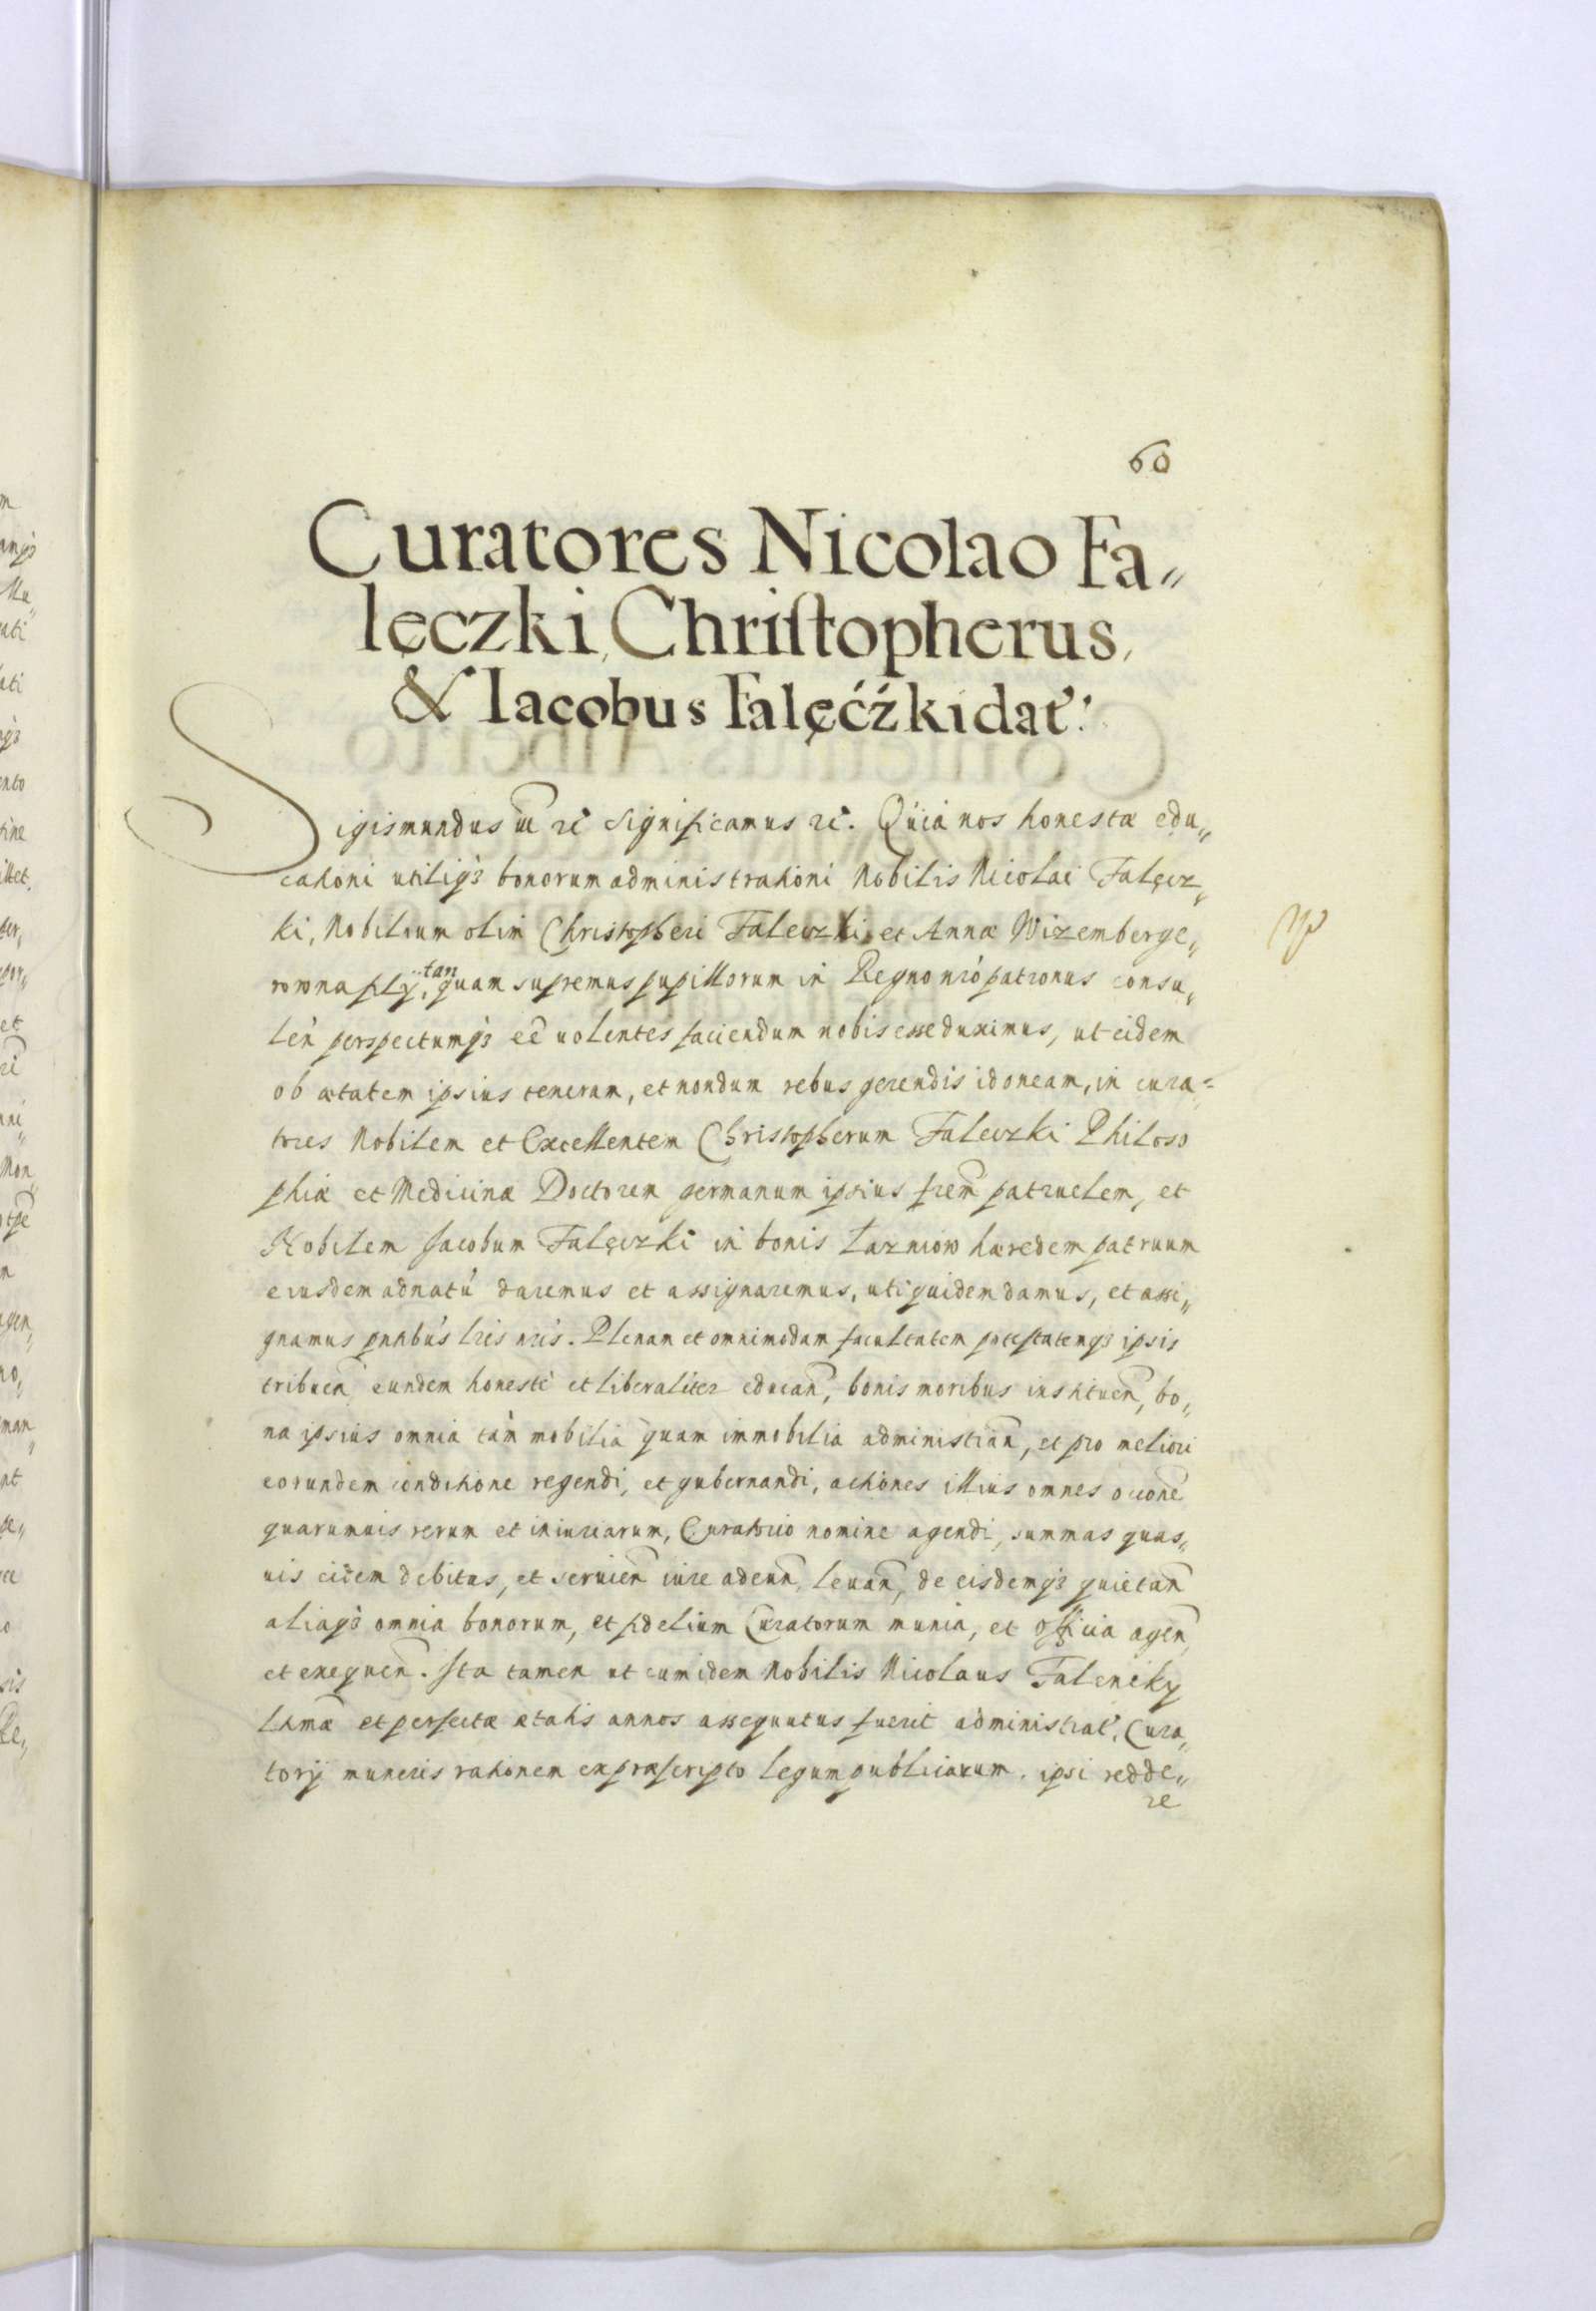 60
Curatores Nicolao Fa„
lęczki, Chriſtopherus,
& Iacobus Falęćźki dat̕:
Sigismundus etc̃ Significamus etc. Quia nos honestæ edu„
cationi utiliq3 bonorum administrationi Nobilis Nicolai Falęcz„
ki, Nobilium olim Christopheri Faleczki, et Annæ Wizemberge„
rowna filij, tan quam supremus pupillorum in Regno nrõ patronus consu„
leñ perspectumq3 eẽ uolentes faciendum nobis esse duximus, ut eidem
ob ætatem ipsius teneram, et nondum rebus gerendis idoneam, in cura=
tores Nobilem et Excellentem Christopherum Faleczki Philoso
phiæ et Medicinæ Doctorem germanum ipsius frem̃ patruelem, et
Nobilem Jacobum Falęczki in bonis Łazniow hæredem patruum
eiusdem adnatũ daremus et assignaremus, uti quidem damus, et assi„
gnamus pñtibus lrĩs nrĩs. Plenam et omnimodam facultatem potestatemq3 ipsis
tribueñ eundem honestè et liberaliter educañ, bonis moribus institueñ, bo„
na ipsius omnia tàm mobilia quam immobilia administrañ, et pro meliori
eorundem conditione regendi, et gubernandi, actiones illius omnes occoñe
quarumuis rerum et iniuriarum, Curatorio nomine agendi, summas quas„
uis eidem debitas, et seruieñ iure adeuñ, leuañ, de eisdemq3 quietañ
aliaq3 omnia bonorum, et fidelium Curatorum munia, et officia ageñ,
et exequeñ. Ita tamen ut cum idem Nobilis Nicolaus Falencky
ltimæ et perfectæ ætatis annos assequutus fuerit administrat̕, Cura„
torij muneris rationem ex præscripto legum publicarum. ipsi redde„
re